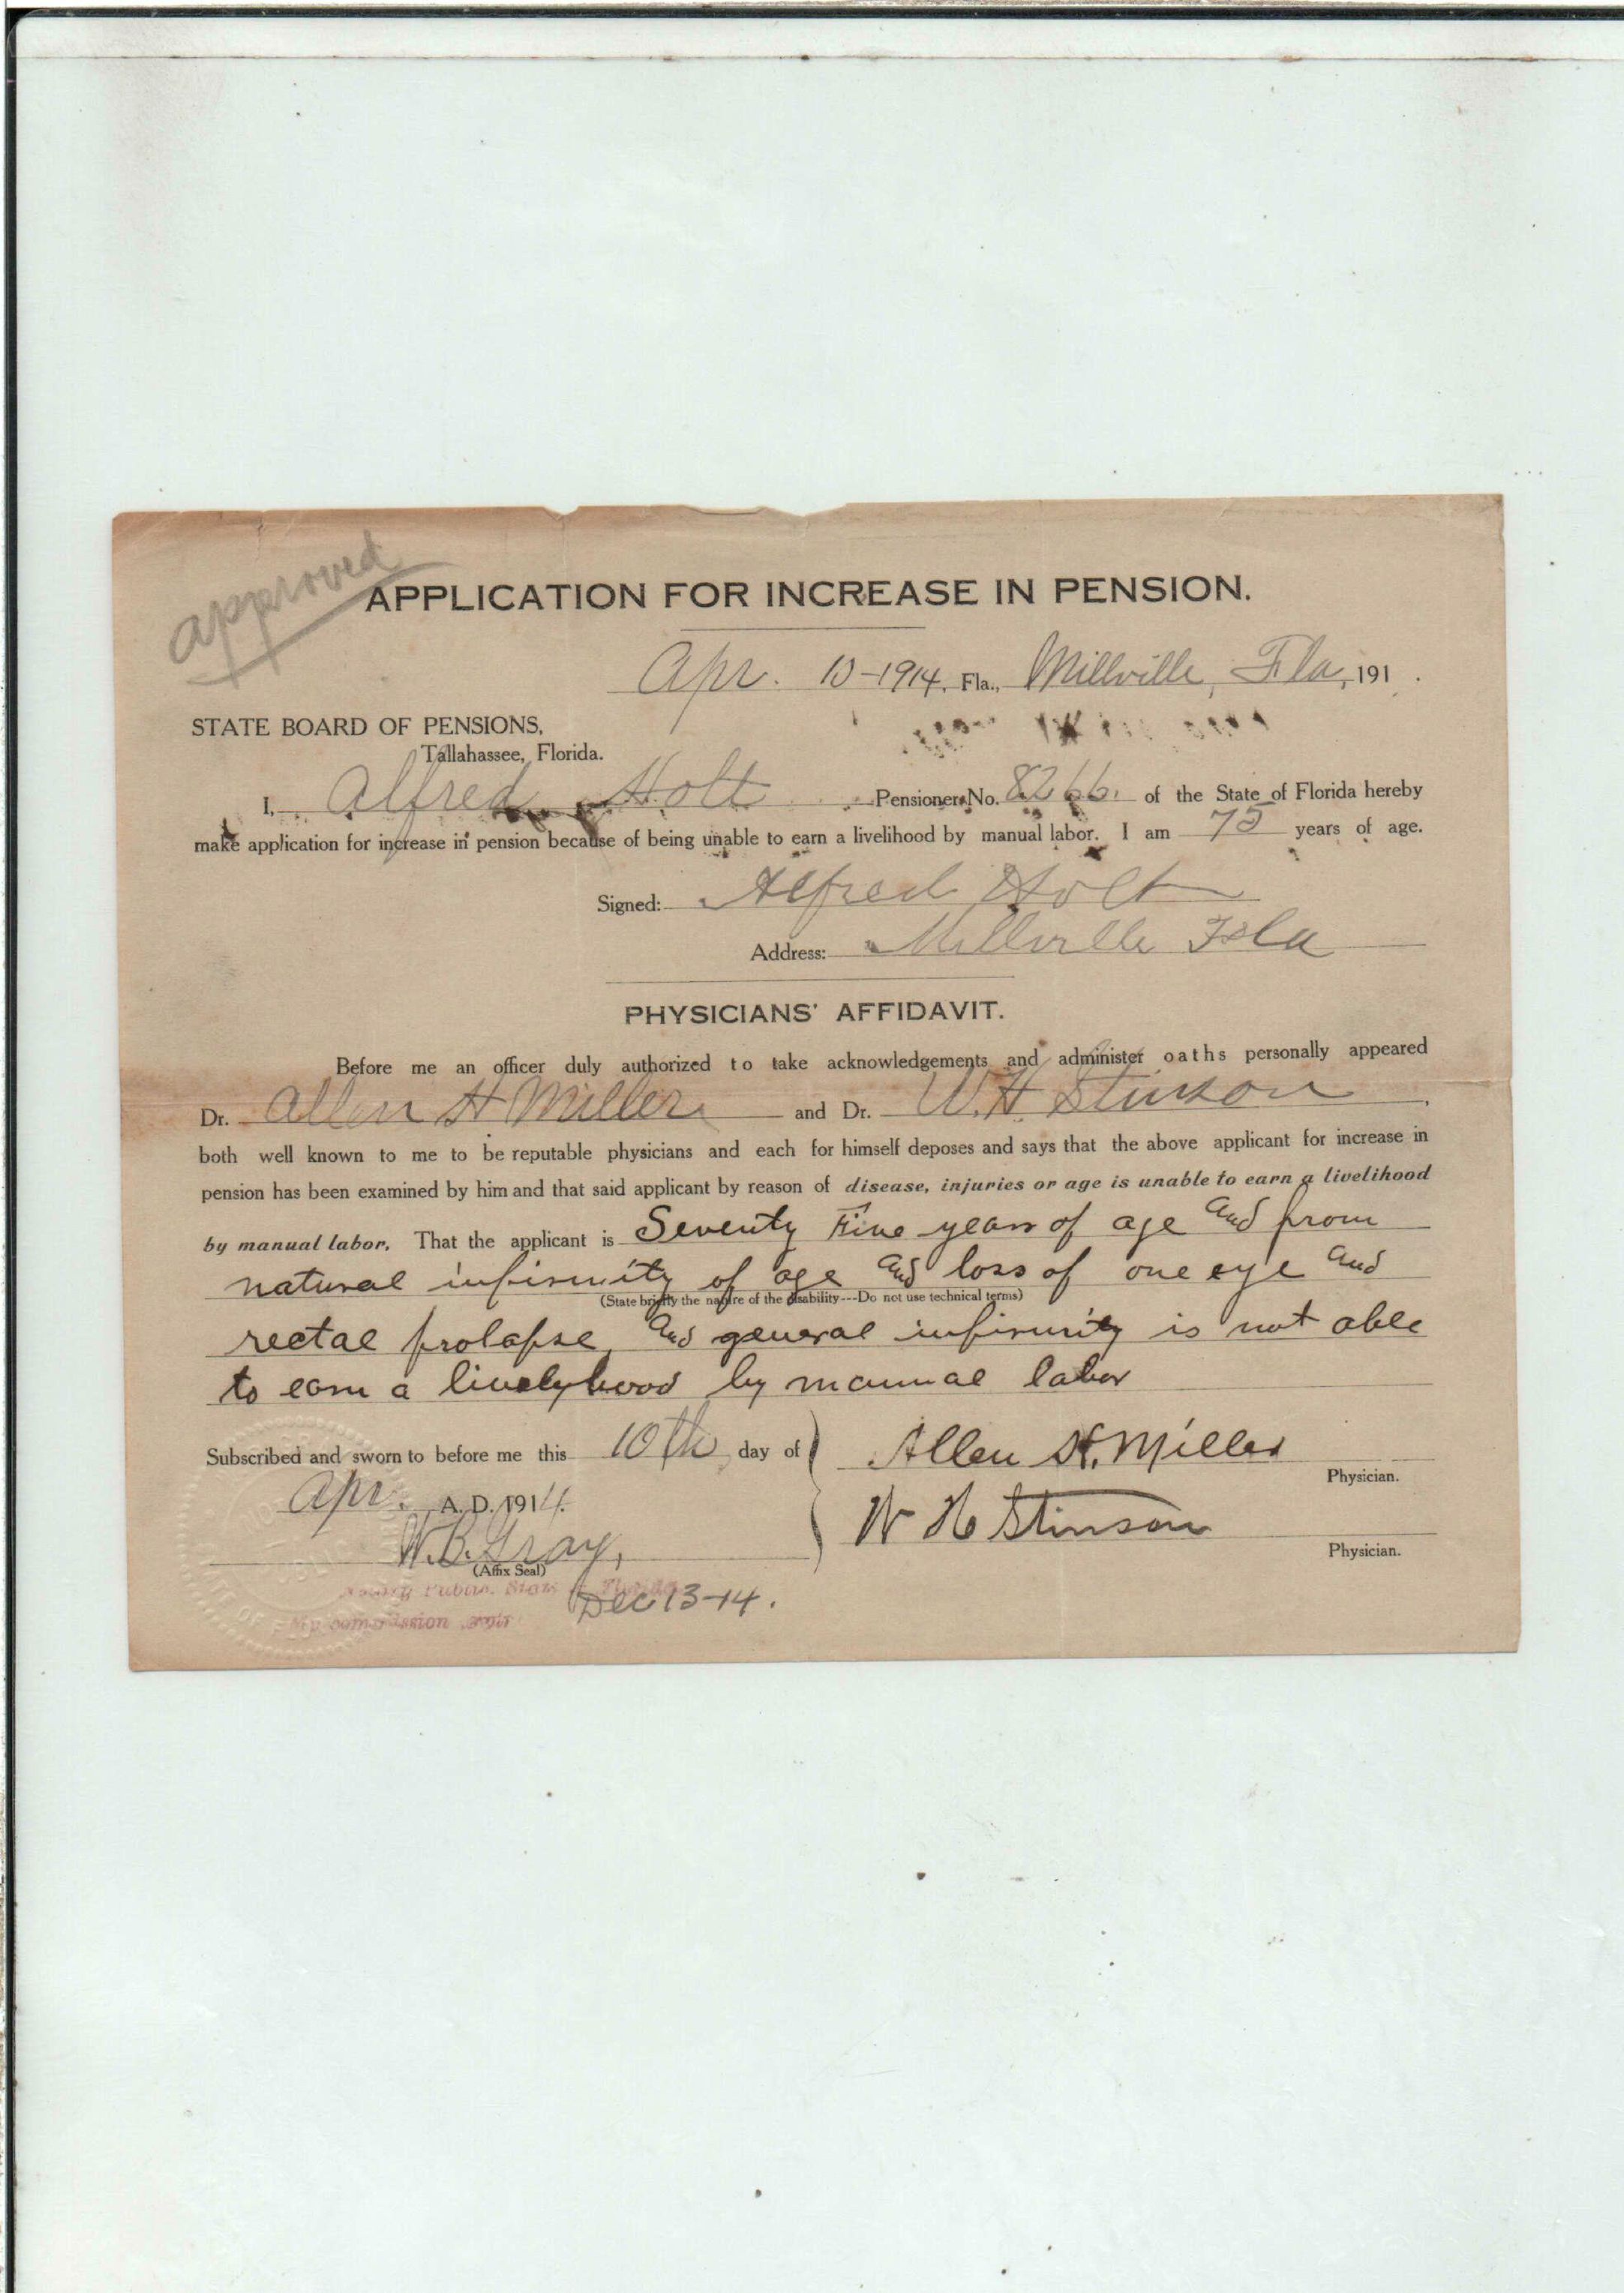 approved
APPLICATION FOR INCREASE IN PENSION.
Apr. 10-1914, Fla., Millville, Fla, 191 .
STATE BOARD OF PENSIONS,
Tallahassee, Florida.
I, Alfred Holt Pensioner No. 8266. of the State of Florida hereby
make application for increase in pension because of being unable to earn a livelihood by manual labor. I am 75 years of age.
Signed: Alfred Holt
Address: Millville Fla
PHYSICIANS' AFFIDAVIT.
Before me an officer duly authorized to take acknowledgements and administer oaths personally appeared
Dr. Allen H Miller and Dr. W. H Stinson,
both well known to me to be reputable physicians and each for himself deposes and says that the above applicant for increase in
pension has been examined by him and that said applicant by reason of disease, injuries or age is unable to earn a livelihood
by manual labor. That the applicant is Seventy Five years of age and from
natural infirmity of age and loss of one eye and
(State briefly the nature of the disability---Do not use technical terms)
rectal prolapse, and general infirmity is not able
to earn a livelyhood by manual labor
Subscribed and sworn to before me this 10th day of Allen H. Miller
Physician.
Apr. , A. D. 1914.
W H Stinson
W. B. Gray,
Physician.
(Affix Seal)
Notary Public, State of Florida
My commission expir Dec 13-14.